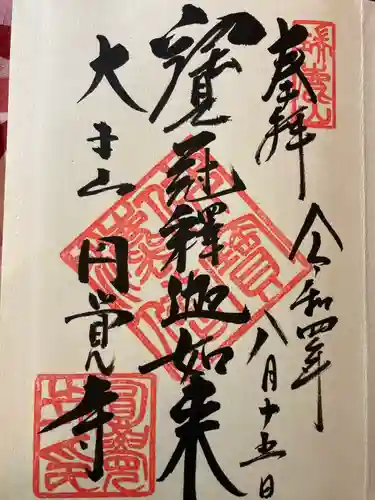 奉拝
瑞鹿山
令和四年
八月十五日
寳冠釋迦如来
大本山
円覚寺